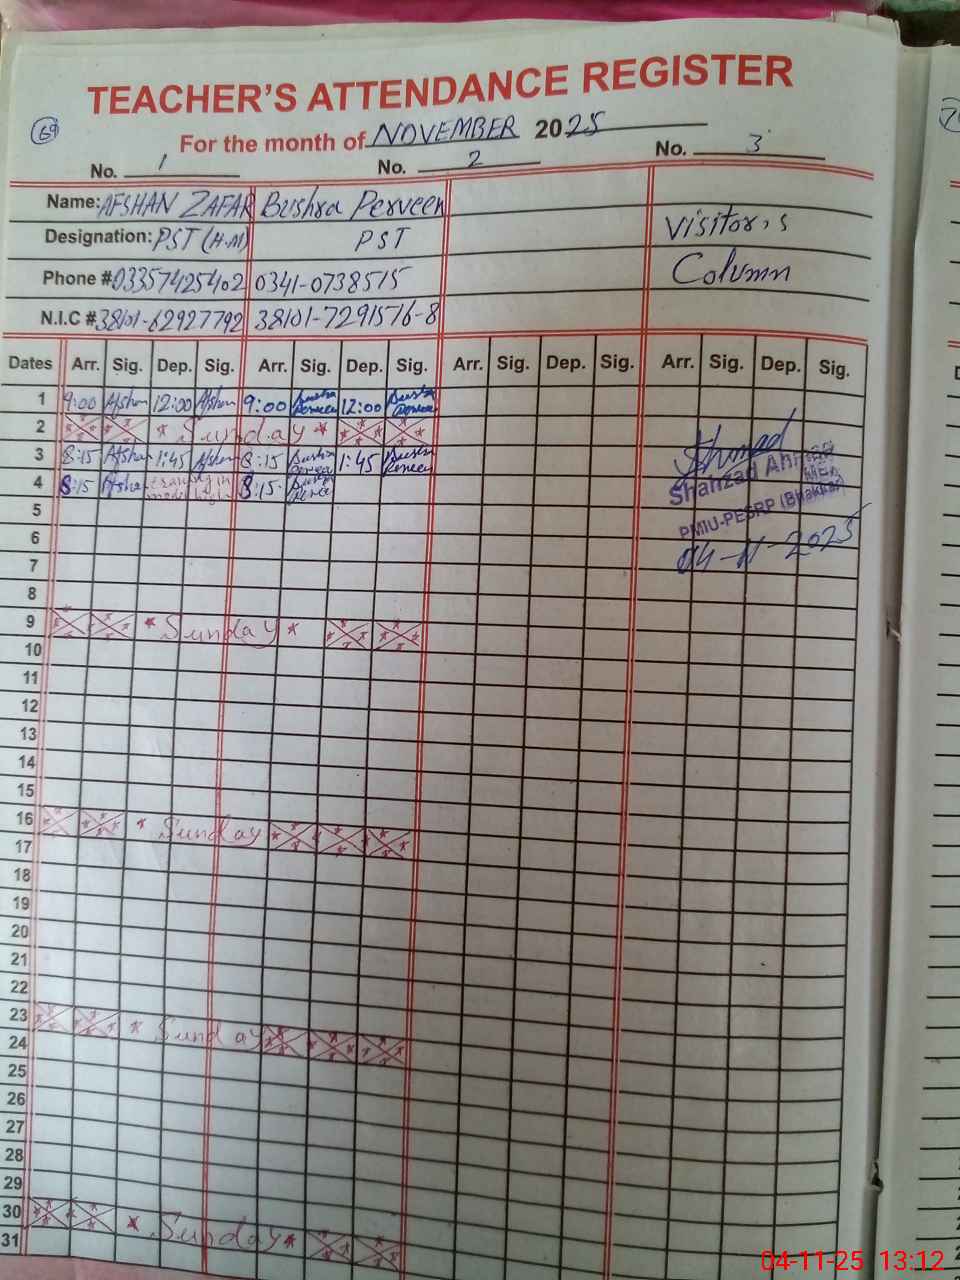 TEACHER'S ATTENDANCE REGISTER
69
For the month of NOVEMBER 2025
No. 1 No. 2 No. 3
Name: AFSHAN ZAFAR Bushra Perveen
Designation: PST (H.M) PST Visitor,s
Phone # 03357425402 0341-0738515 Column
N.I.C # 38101-62927792 38101-7291576-8
Dates Arr. Sig. Dep. Sig. Arr. Sig. Dep. Sig. Arr. Sig. Dep. Sig. Arr. Sig. Dep. Sig.
1 9:00 Afshan 12:00 Afshan 9:00 Bushra Perveen 12:00 Bushra Perveen
2 * Sunday *
3 8:15 Afshan 1:45 Afshan 8:15 Bushra Perveen 1:45 Bushra Perveen
4 8:15 Afshan 8:15 Bushra Perveen
Ahmad
Shahzad Ahmad
MEA
PMIU-PESRP (Bhakkar)
04-11-2025
5
6
7
8
9 * Sunday *
10
11
12
13
14
15
16 * Sunday
17
18
19
20
21
22
23 * Sunday
24
25
26
27
28
29
30 * Sunday *
31
04-11-25 13:12